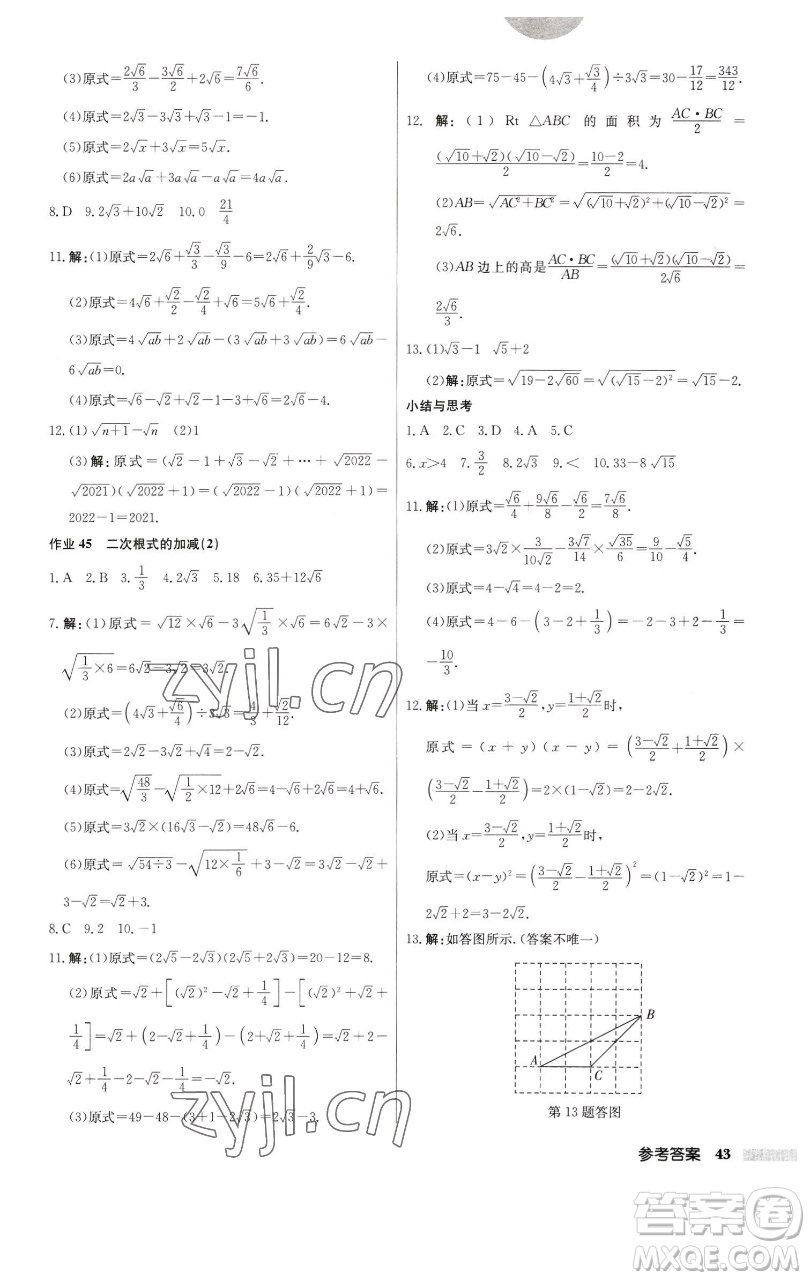 (3)原式=2√6/3-3√6/2+2√6=7√6/6.
(4)原式=2√3-3√3+√3-1=-1.
(5)原式=2√x+3√x=5√x.
(6)原式=2a√a+3a√a-a√a=4a√a.
8.D 9.2√3+10√2 10.0 21/4
11.解:(1)原式=2√6+√3/3-√3/9-6=2√6+2/9√3-6.
(2)原式=4√6+√2/2-√2/4+√6=5√6+√2/4.
(3)原式=4√ab+2√ab-(3√ab+3√ab)=
6√ab=0.
(4)原式=√6-√2+√2-1-3+√6=2√6-4.
12.(1)√n+1-√n (2)1
(3)解:原式=(√2-1+√3-√2+…+√2022-
√2021)(√2022+1)=(√2022-1)(√2022+1)=
2022-1=2021.
作业45 二次根式的加减(2)
1.A 2.B 3.1/3 4.2√3 5.18 6.35+12√6
7.解:(1)原式=√12×√6-3√(1/3)×√6=6√2-3×
√(1/3×6)=6√2-3√2=3√2.
(2)原式=(4√3+√6/4)÷3√3=4/3+√2/12.
(3)原式=2-2√2+√2=2-√2.
(4)原式=√(48/3)-√(1/2×12)+2√6=4-√6+2√6=4+√6.
(5)原式=3√2×(16√3-√2)=48√6-6.
(6)原式=√54÷3-√(12×1/6)+3-√2=3√2-√2+
3-√2=√2+3.
8.C 9.2 10.-1
11.解:(1)原式=(2√5-2√3)(2√5+2√3)=20-12=8.
(2)原式=√2+[(√2)²-√2+1/4]-[(√2)²-√2+
1/4]=√2+(2-√2+1/4)-(2+1/4-√2)=√2+2-
√2+1/4-2-1/4+√2=√2.
(3)原式=49-48-(3+1-2√3)=2√3-3.
(4)原式=75-45-(4√3+√3/4)÷3√3=30-17/12=343/12.
12.解:(1)Rt△ABC的面积为AC·BC/2=
(√10+√2)(√10-√2)/2=10-2/2=4.
(2)AB=√AC²+BC²=√(√10+√2)²+(√10-√2)²=
2√6.
(3)AB边上的高是AC·BC/AB=(√10+√2)(√10-√2)/2√6=
2√6/3.
13.(1)√3-1 √5+2
(2)解:原式=√19-2√60=√(√15-2)²=√15-2.
小结与思考
1.A 2.C 3.D 4.A 5.C
6.x>4 7.3/2 8.2√3 9.< 10.33-8√15
11.解:(1)原式=√6/4+9√6/8-√2/2=7√6/8-√2/2.
(2)原式=3√2×3/10√2-3√7/14×√35/6=9/10-√5/4.
(3)原式=4-√4=4-2=2.
(4)原式=4-6-(3-2+1/3)=-2-(1+1/3)=
-10/3.
12.解:(1)当x=3-√2/2,y=1+√2/2时,
原式=(x+y)(x-y)=(3-√2/2+1+√2/2)×
(3-√2/2-1+√2/2)=2×(1-√2)=2-2√2.
(2)当x=3-√2/2,y=1+√2/2时,
原式=(x-y)²=(3-√2/2-1+√2/2)²=(1-√2)²=1-
2√2+2=3-2√2.
13.解:如答图所示.(答案不唯一)
A B C
第13题答图
参考答案 43
zyjl.cn
zyjl.cn
答案圈
MXQE.COM